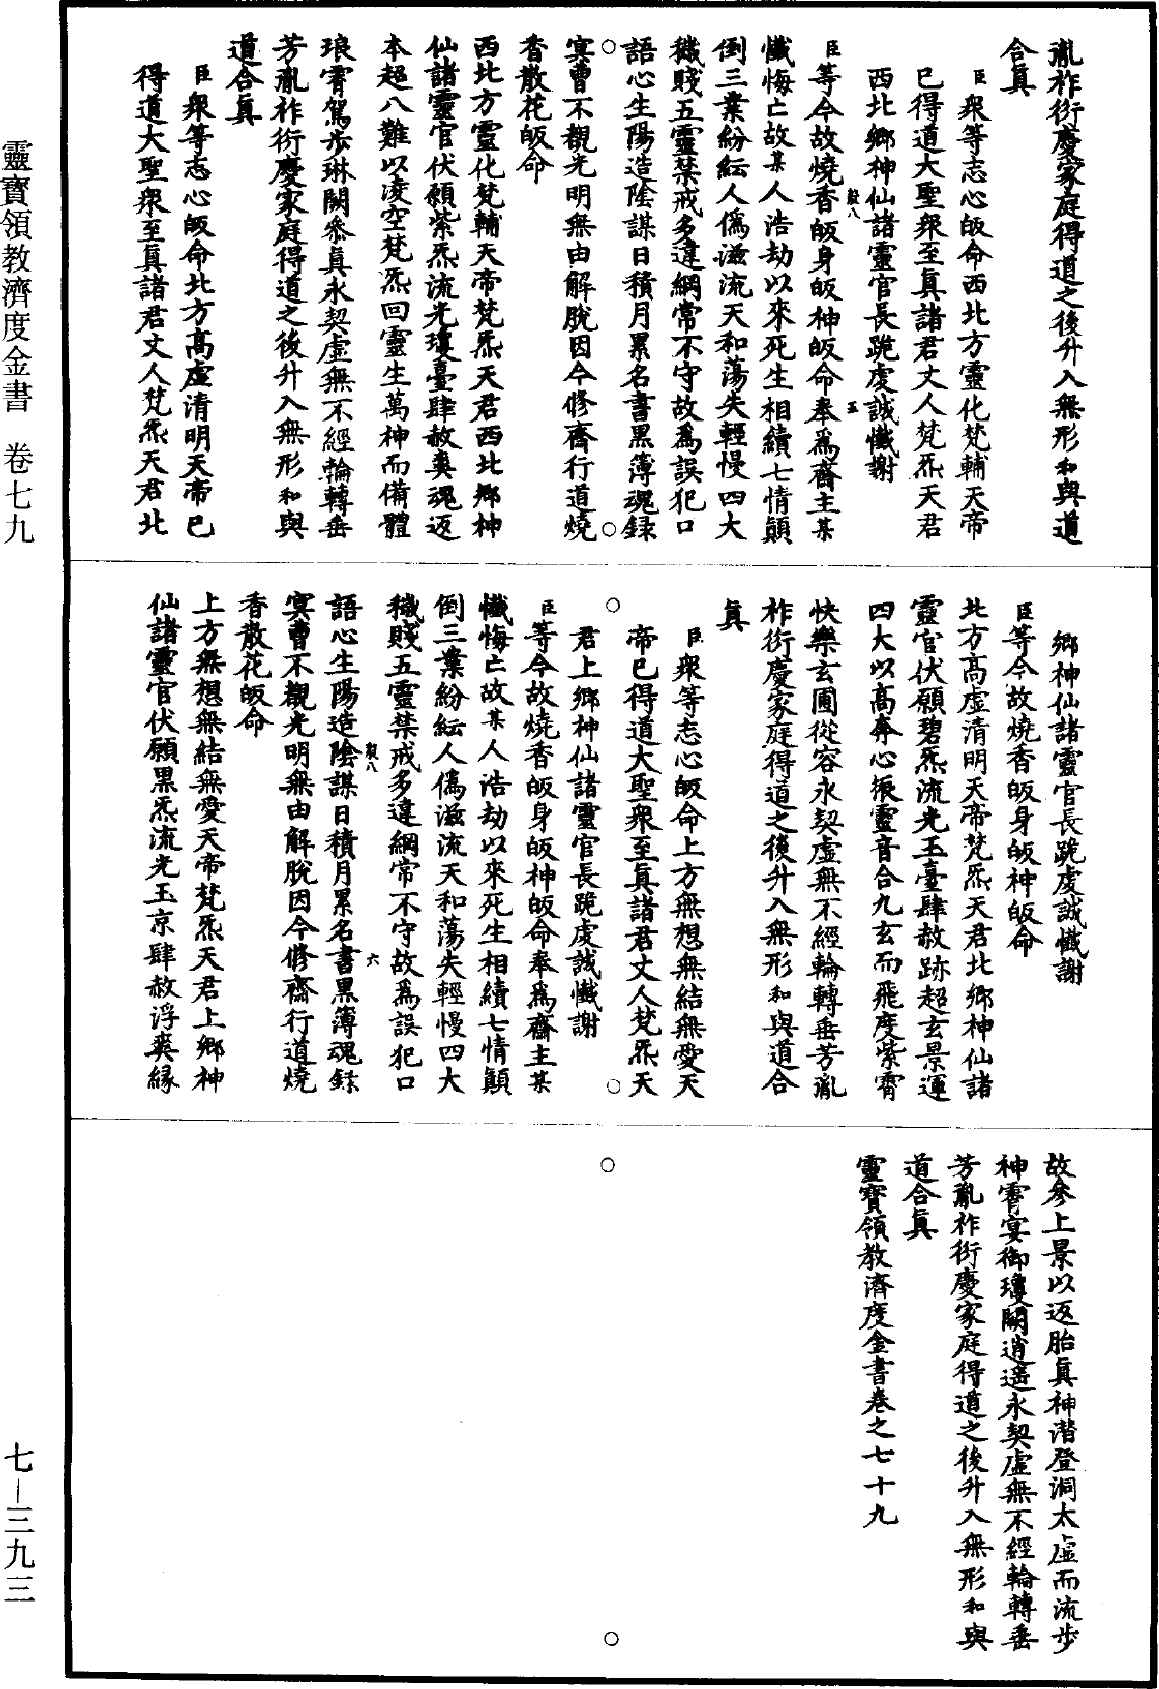 胤祚衍慶家庭得道之後升入無形和與道
合眞
臣衆等志心皈命西北方靈化梵輔天帝
已得道大聖衆至眞諸君丈人梵炁天君
西北鄉神仙諸靈官長跪虔誠懺謝
臣等今故燒香皈身皈神皈命奉爲齋主某
懺悔亡故某人浩劫以來死生相續七情顚
倒三業紛紜人僞滋流天和蕩失輕慢四大
穢賤五靈禁戒多違綱常不守故爲誤犯口
語心生陽造陰謀日積月累名書黑簿魂録
㝠曹不覩光明無由解脫因今修齋行道燒
香散花皈命
西北方靈化梵輔天帝梵炁天君西北鄉神
仙諸靈官伏願紫炁流光瓊臺肆赦爽魂返
本超八難以凌空梵炁回靈生萬神而備體
琅霄駕歩琳闕叅真永契虛無不經輪轉垂
芳胤祚衍慶家庭得道之後升入無形和與
道合眞
臣衆等志心皈命北方高虛清明天帝已
得道大聖衆至眞諸君丈人梵炁天君北
鄉神仙諸靈官長跪虔誠懺謝
臣等今故燒香皈身皈神皈命
北方高虛清明天帝梵炁天君北鄉神仙諸
靈官伏願碧炁流光玉臺肆赦跡超玄景運
四大以高奔心振靈音合九玄而飛度紫霄
快樂玄圃從容永契虛無不經輪轉垂芳胤
祚衍慶家庭得道之後升入無形和與道合
眞
臣衆等志心皈命上方無想無結無愛天
帝已得道大聖衆至眞諸君丈人梵炁天
君上鄉神仙諸靈官長跪虔誠懺謝
臣等今故燒香皈身皈神皈命奉爲齋主某
懺悔亡故某人浩劫以來死生相續七情顚
倒三業紛紜人僞滋流天和蕩失輕慢四大
穢賤五靈禁戒多違綱常不守故爲誤犯口
語心生陽造陰謀日積月累名書黑簿魂録
㝠曹不覩光明無由解脫因今修齋行道燒
香散花皈命
上方無想無結無愛天帝梵炁天君上鄉神
仙諸靈官伏願黑炁流光玉京肆赦浮爽緣
故參上景以返胎眞神潛登洞太虛而流歩
神霄宴御瓊闕逍遥永契虛無不經輪轉垂
芳胤祚衍慶家庭得道之後升入無形和與
道合眞
靈寶領教濟度金書卷之七十九
靈寶領教濟度金書 卷七九
七—三九三